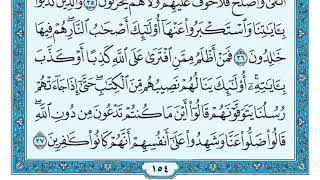 ٱتَّقَىٰ وَأَصۡلَحَ فَلَا خَوۡفٌ عَلَيۡهِمۡ وَلَا هُمۡ يَحۡزَنُونَ ٣٥ وَٱلَّذِينَ كَذَّبُواْ
بِـَٔايَٰتِنَا وَٱسۡتَكۡبَرُواْ عَنۡهَآ أُوْلَٰٓئِكَ أَصۡحَٰبُ ٱلنَّارِۖ هُمۡ فِيهَا
خَٰلِدُونَ ٣٦ فَمَنۡ أَظۡلَمُ مِمَّنِ ٱفۡتَرَىٰ عَلَى ٱللَّهِ كَذِبًا أَوۡ كَذَّبَ
بِـَٔايَٰتِهِۦٓۚ أُوْلَٰٓئِكَ يَنَالُهُمۡ نَصِيبُهُم مِّنَ ٱلۡكِتَٰبِۖ حَتَّىٰٓ إِذَا جَآءَتۡهُمۡ
رُسُلُنَا يَتَوَفَّوۡنَهُمۡ قَالُوٓاْ أَيۡنَ مَا كُنتُمۡ تَدۡعُونَ مِن دُونِ ٱللَّهِۖ
قَالُواْ ضَلُّواْ عَنَّا وَشَهِدُواْ عَلَىٰٓ أَنفُسِهِمۡ أَنَّهُمۡ كَانُواْ كَٰفِرِينَ ٣٧
١٥٤